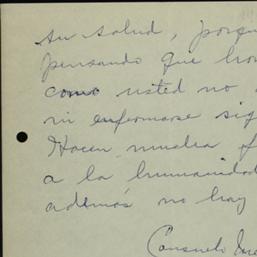 su salud, porqu
pensando que ho
como usted no d
ni enfermarse sig
Hacen mucha f
a la humanidad
además no hay
Consuelo